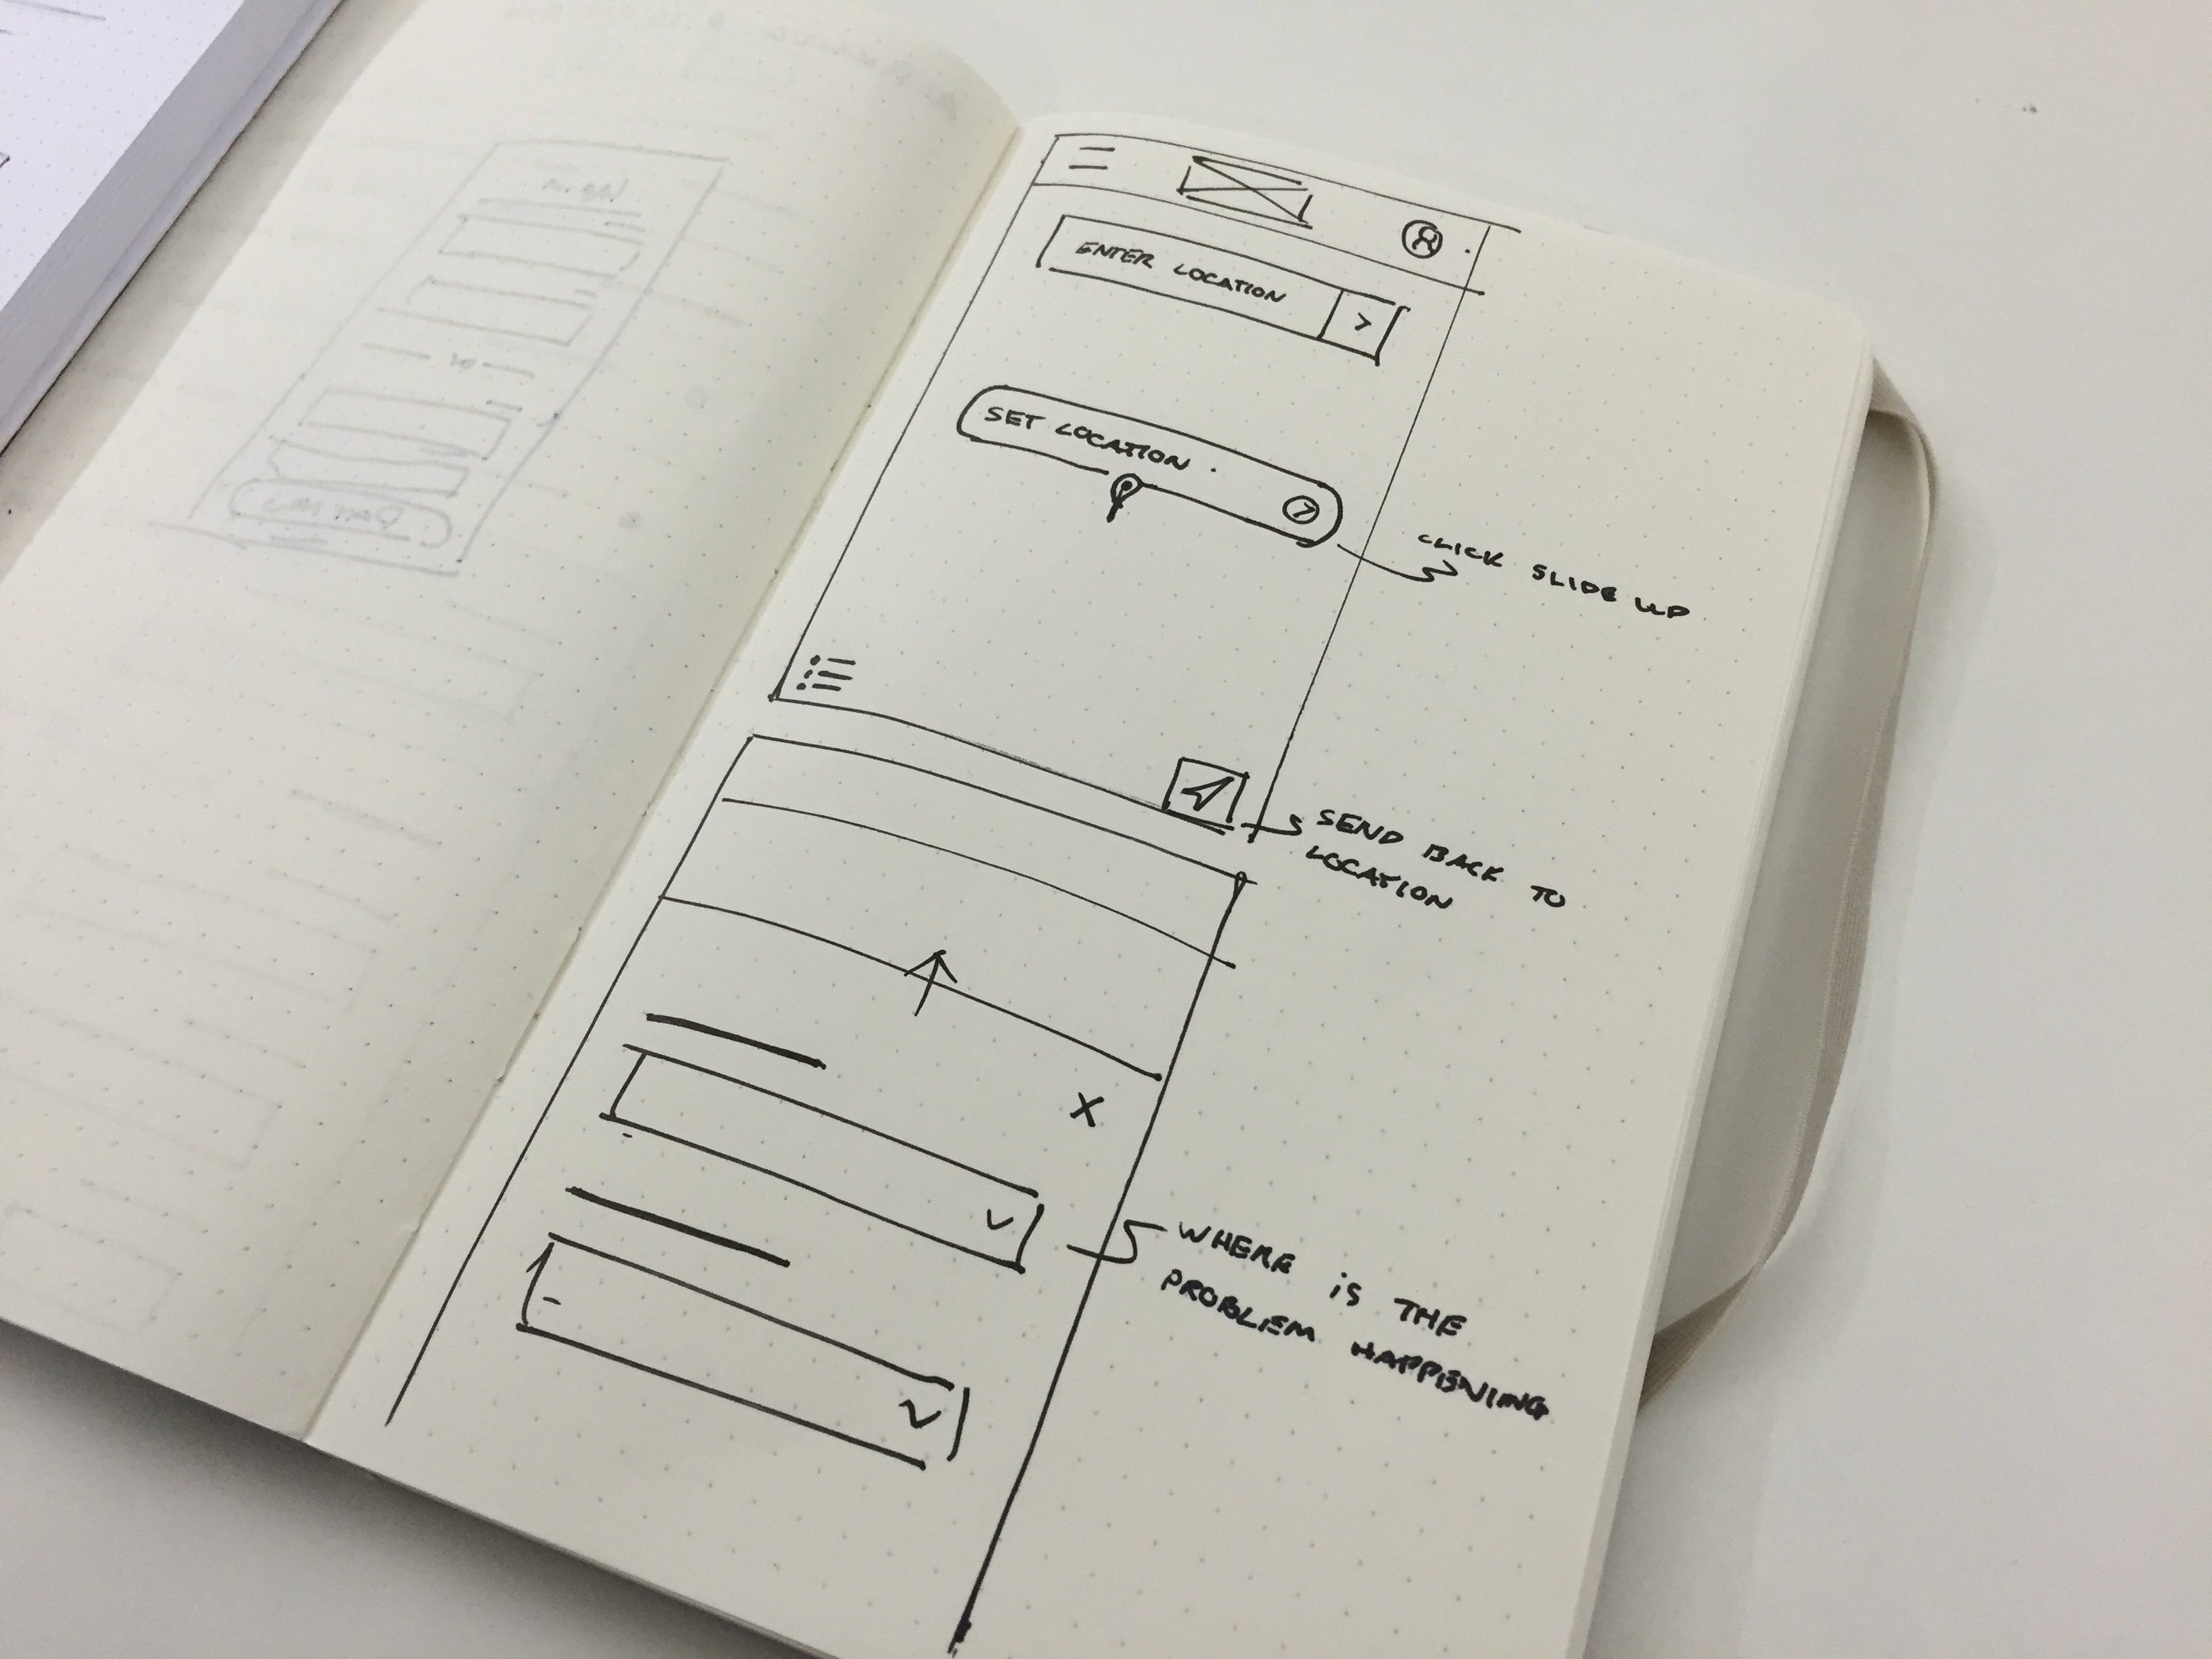 ENTER LOCATION
>
SET LOCATION
>
CLICK SLIDE UP
SEND BACK TO
LOCATION
X
WHERE IS THE
PROBLEM HAPPENING